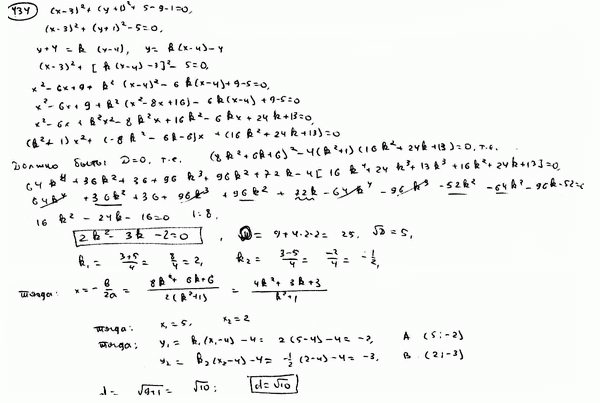 434 (x-3)² + (y+1)² + 5-9-1=0,
(x-3)² + (y+1)² - 5=0,
y+4 = k (x-4), y= k(x-4)-4
(x-3)² + [k(x-4)-3]² - 5=0,
x²-6x+9+k²(x-4)²-6k(x-4)+9-5=0,
x²-6x+9+k²(x²-8x+16)-6k(x-4)+9-5=0
x²-6x+k²x²-8k²x+16k²-6kx+24k+13=0,
(k²+1)x²+(-8k²-6k-6)x+(16k²+24k+13)=0
Должно быть D=0, т.е. (8k²+6k+6)²-4(k²+1)(16k²+24k+13)=0, т.е.
64k⁴+36k²+36+96k³+96k²+72k-4[16k⁴+24k³+13k²+16k²+24k+13]=0,
64k⁴+36k²+36+96k³+96k²+72k-64k⁴-96k³-52k²-64k²-96k-52=0
16k²-24k-16=0 |:8,
2k²-3k-2=0, D=9+4·2·2=25, √D=5,
k₁=(3+5)/4=8/4=2, k₂=(3-5)/4=-2/4=-1/2,
тогда: x=-b/2a=(8k²+6k+6)/(2(k²+1))=(4k²+3k+3)/(k²+1)
тогда: x₁=5, x₂=2
тогда: y₁=k₁(x₁-4)-4=2(5-4)-4=-2, A (5;-2)
y₂=k₂(x₂-4)-4=-1/2(2-4)-4=-3, B (2;-3)
d=√(9+1)=√10; d=√10